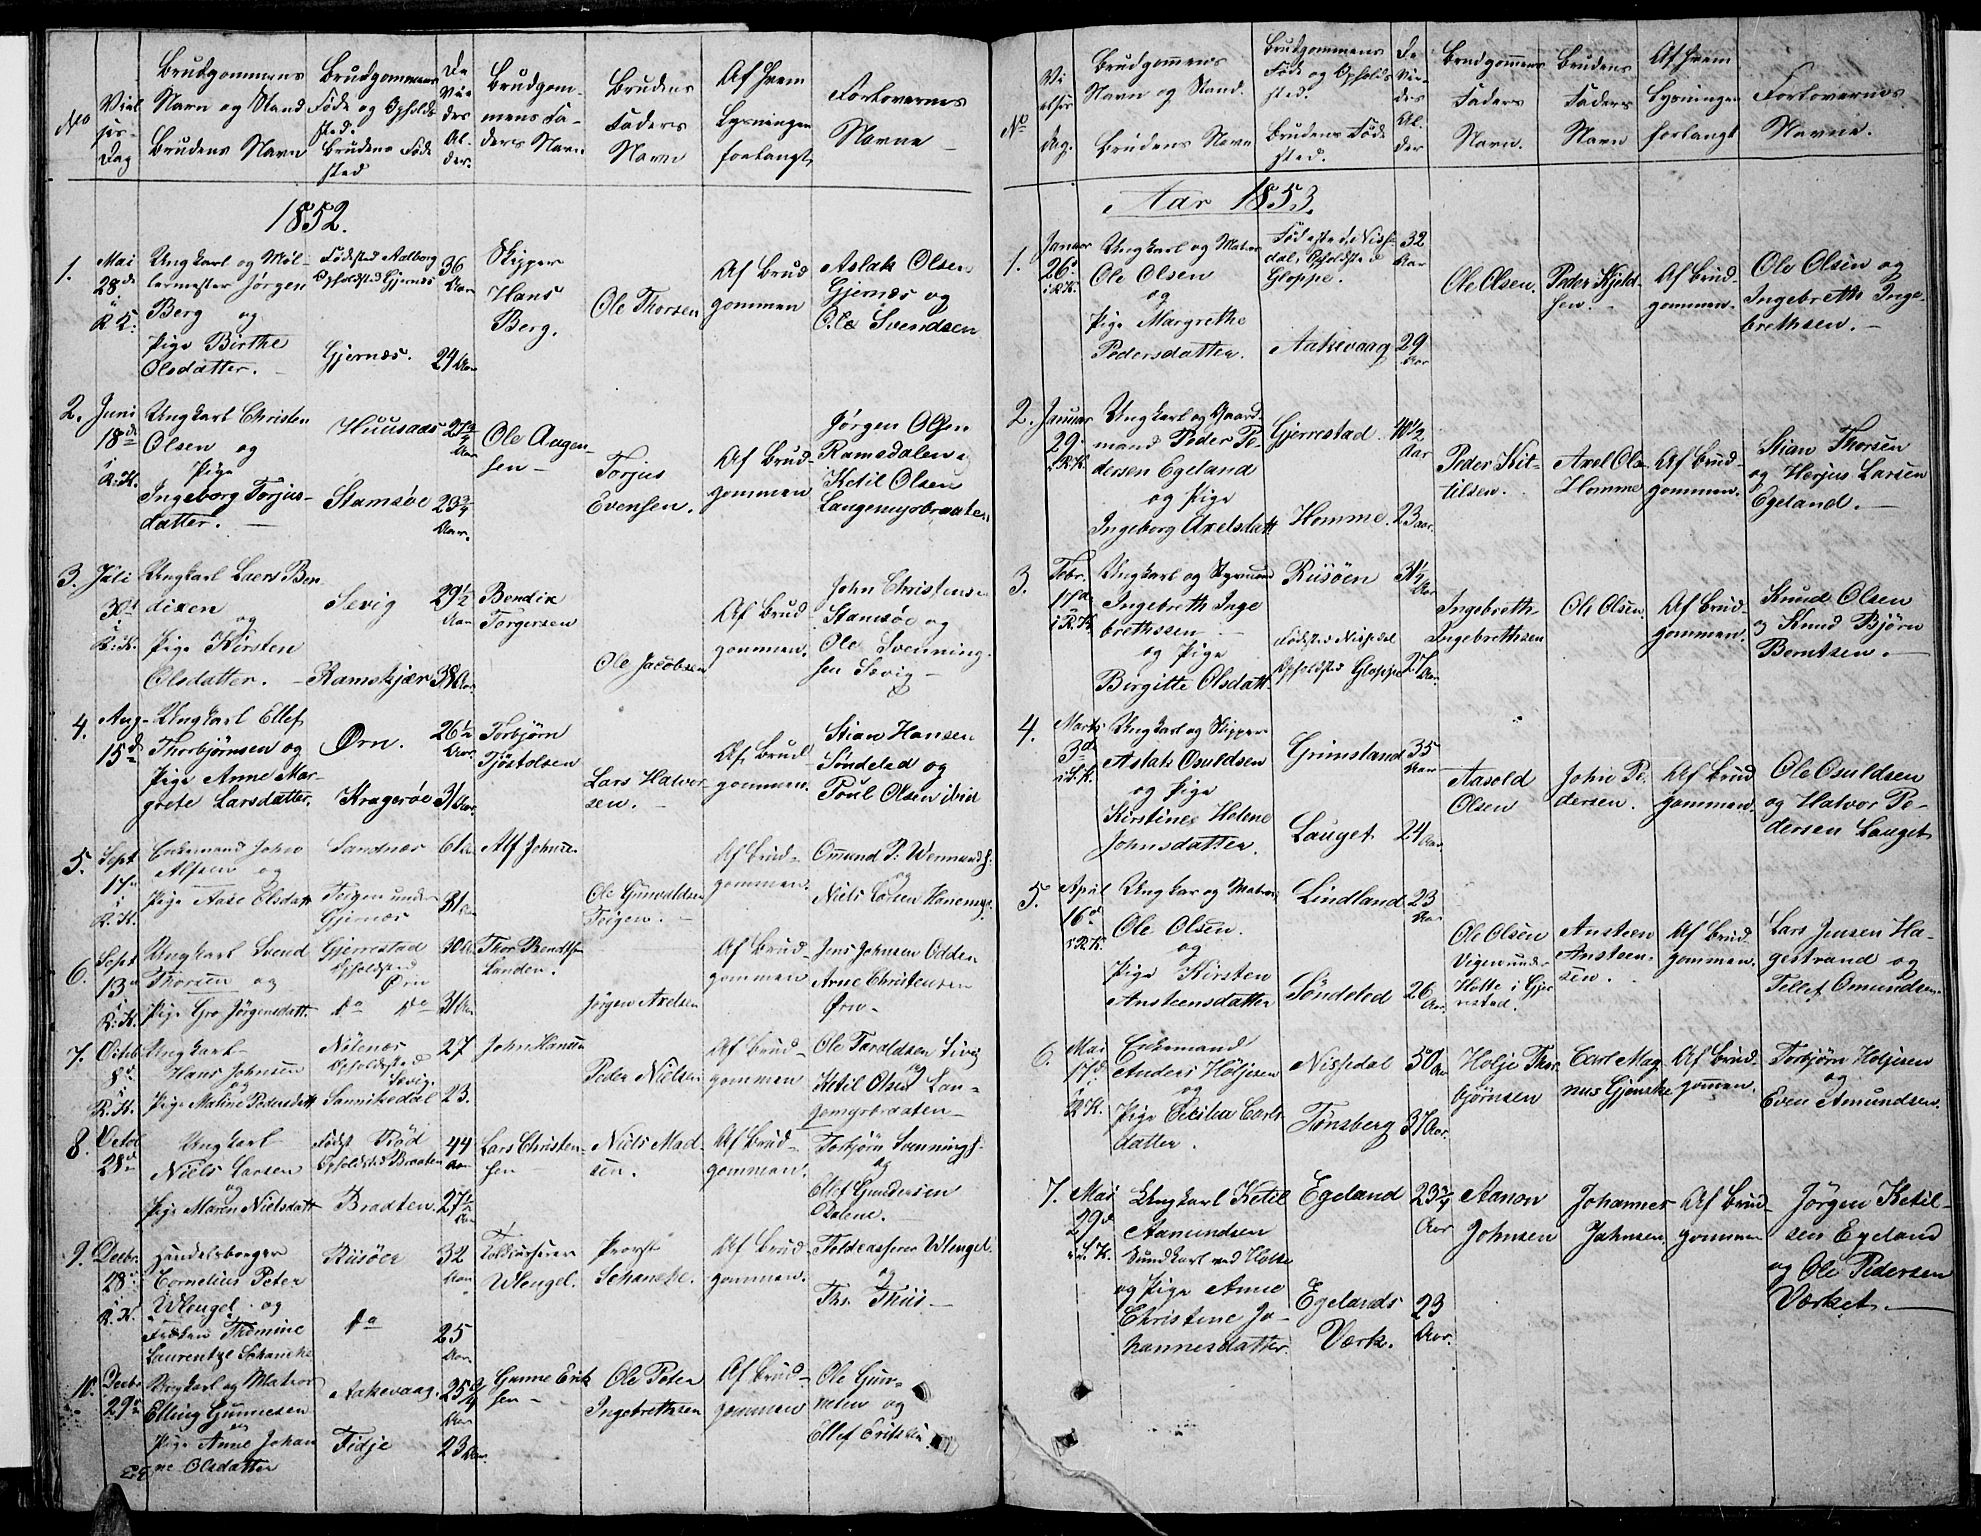 No
Viel
ses-
Dag
Brudgommens
Navn og Stand
Brudens Navn
Brudgommens
Føde og Opholds
sted.
Brudens Føde
sted
De
Vie
des
Al-
der.
Brudgom-
mens Fa-
ders Navn
Brudens
Faders
Navn
Af hvem
Lysningen
forlangt
Forlovernes
Navne
1852.
1.
Mai
28de
i
R. K.
Ungkarl og Møl-
lermester Jørgen
Berg og
Pige Birthe
Olsdatter.
Fødested Aalborg
Opholdsted Gjernes
Gjernæs.
36
Aar
24 Aar
Skipper
Hans
Berg.
Ole Thorsen
Af Brud
gommen
Aslak Olsen
Gjernæs og
Ole Svendsen
2.
Juni
18de
i
R. K.
Ungkarl Christen
Olsen og
Pige
Ingeborg Torjus-
datter.
Huusaas
Stamsøe
Aar
Aar.
Ole Aagen-
sen
Torjus
Evensen.
Af Brud-
gommen
Jørgen Olsen
Ramsdalen og
Ketil Olsen
Langemyrbraaten
3.
Juli
30de
i
R. K.
Ungkarl Laers Ben
dixen
og
Pige Kirsten
Olsdatter.
Sevig
Ramskjær
29½
Aar
38 Aar
Bendix
Torgersen
Ole Jacobsen
Af Brud-
gommen.
John Christensen
Stamsøe og
Ole Svenning-
sen Sevig
4.
Aug-
15de
Ungkarl Ellef
Thorbjørnsen og
Pige Anne Mar-
grete Larsdatter.
Ørn.
Kragerøe
26½
Aar
31 Aar
Torbjørn
Tjøstolsen
Lars Halvor
sen.
Af Brud
gommen.
Stian Hansen
Søndeled og
Poul Olsen ibid
5.
Sept
17de
i
R. K.
Enkemand John
Alfsen og
Pige Aase Olsdatt
Sandnæs
Teigen under
Gjernæs
61 Aar
31 Aar
Alf Johnsen
Ole Gunvaldsen
Teigen.
Af Brud-
gommen.
Omund P. Wennund
og
Niels Larsen Hanemyr
6.
Sept
13de
i
R. K.
Ungkarl Svend
Thorsen og
Pige Gro Jørgensdatt
Gjerrestad
Opholdsted
Ørn
do do
30 Aar
31 Aar
Thor Bendtsen
Landen.
Jørgen Axelsen
Af Brud-
gommen
Jens Johnsen Odden
Arne Christensen
Ørn
7.
Octob
8de
i
R. K.
Ungkarl
Hans Johnsen
og
Pige Maline Pedersdatt
Nitenæs
Opholdsted
Sevig.
Sannikedal
27
23.
John Hansen
Peder Nielsen
Af Brud-
gommen
Ole Taraldsen Sivig
og
Ketil Olsen Lan-
gemyrbraaten
8.
Octob
28de
Ungkarl
Niels Larsen
og
Pige Maren Nielsdatt
Fødst Rød
Opholdsted Braaten
Braaten
44
Aar
27½
Aar
Lars Christen-
sen
Niels Mad-
sen.
Af Brud-
gommen.
Torbjørn Svennings
og
Ellef Gundersen
9.
Decbr.
28de
i
R. K.
Handelsborger
Cornelius Peter
Wengel og
Frøken Thomine
Laurentze Schancke
Riisøer
do
32
Aar
25
Aar
Toldcasserer
Wengel.
Provst
Schancke.
Af Brud-
gommen.
Toldcasserer Wengel
og
Ths. Thiis
10.
Decbr
29de
Ungkarl og Matros
Elling Gunnesen
og
Pige Anne Johan
ne Olsdatter
Aakevaag.
Fidje
25
Aar
23 Aar.
Gunne Erik
sen
Ole Peter
Ingebrethsen
Af Brud-
gommen
Ole Gun-
nesen og
Ellef Eriksen
No
Vi
elses
dag.
Brudgommens
Navn og Stand.
Brudens Navn
Brudgommens
Føde og Opholds
sted.
Brudens Føde
sted.
De
Vie-
des
Al-
der
Brudgommens
Faders
Navn.
Brudens
Faders
Navn
Af hvem
Lysningen
forlangt
Forlovernes
Navne.
Aar 1853.
1.
Januar
26de
i R. K.
Ungkarl og Matros
Ole Olsen
og
Pige Margrethe
Pedersdatter.
Fødested Niss-
dal, Opholdsted
Gloppe.
Aakevaag
32
Aar
29
Aar
Ole Olsen.
Peder Kjeld-
sen.
Af Brud-
gommen.
Ole Olsen og
Ingebreth Inge-
brethsen.
2.
Januar
29de
i R. K.
Ungkarl og Gaard-
mand Peder Pe-
dersen Egeland
og Pige
Ingeborg Axelsdatt
Gjerrestad
Homme.
Aar
23 aar.
Peder Kit-
tilsen.
Axel Ols
Homme
Af Brud-
gommen.
Stian Thorsen
og Herjus Larsen
Egeland.
3.
Febr.
17de
i R. K.
Ungkarl og Styrmand
Ingebreth Inge
brethssen
og Pige
Birgitte Olsdatt.
Riisøen
Fødsted Nissedal
Opholdsted Gloppe
31½
Aar
27 Aar.
Ingebreth
Ingebrethsen
Ole Olsen
Af Brud-
gommen.
Knud Olsen
og Knud Bjørn
Berntsen.
4.
Marts
3de
i S. K.
Ungkarl og Skipper
Aslak Osuldsen
og Pige
Kirstine Helene
Johnsdatter.
Grimsland
Lauget
35
Aar
24 Aar
Aasold
Olsen
John Pe-
dersen.
Af Brud
gommen.
Ole Osuldsen
og Halvor Pe-
dersen Lauget
5.
April
16de
i R. K.
Ungkar og Matros
Ole Olsen.
og
Pige Kirsten
Ansteensdatter
Lindland
Søndeled
23
Aar
26
Aar.
Ole Olsen
Vigen under
Holte i Gjer
restad.
Ansteen
Ansteen-
sen.
Af Brud-
gommen.
Lars Jensen Ha-
gestrand og
Tellef Omundsen.
6.
Mai
17de
i
R. K.
Enkemand
Anders Høljesen
og
Pige Cecilia Carls
datter.
Nissedal
Tønsberg
50 Aar
37 Aar.
Holje Thor
bjørnsen
Carl Mag
nus Gjenske
Af Brud-
gommen.
Torbjørn Holjesen
og
Even Amundsen.
7.
Mai
29de
i S. K.
Ungkarl Ketil
Aamundsen
Kundkarl ved Holte
og Pige Anne
Christine Jo-
hannesdatter.
Egeland
Egelands
Værk.
23¾
Aar
23
Aar.
Aanon
Johnsen
Johannes
Johnsen
Af Brud-
gommen
Jørgen Ketil-
sen Egeland
og Ole Pedersen
Værket.